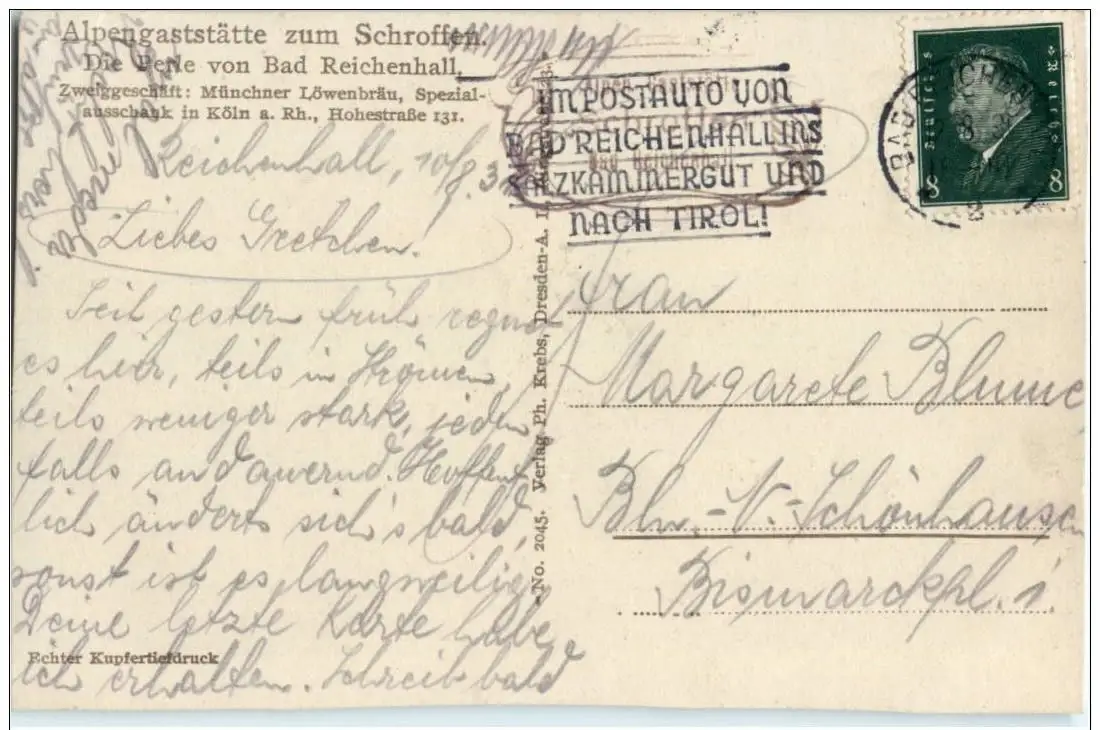 Alpengaststätte zum Schroffen.
Die Perle von Bad Reichenhall,
Zweiggeschäft: Münchner Löwenbräu, Spezial-
ausschank in Köln a. Rh., Hohestraße 131.
Reichenhall, 10/8. 3
Liebes Gretchen!
Seit gestern früh regnet
es hier, teils in Strömen,
teils weniger stark, jeden
falls andauernd. Hoffent
lich änderts sich's bald,
sonst ist es langweilig.
Deine letzte Karte habe
ich erhalten. Schreib bald
Echter Kupfertiefdruck
No. 2045. Verlag Ph. Krebs, Dresden-A. 1,
IM POSTAUTO VON
BAD REICHENHALL INS
SALZKAMMERGUT UND
NACH TIROL!
Bad Reichenhall
BAD REICHENH
Deutsches Reich
8 8
Frau
Margarete Blume
Bln.-N.-Schönhausen
Bismarckpl. 1.